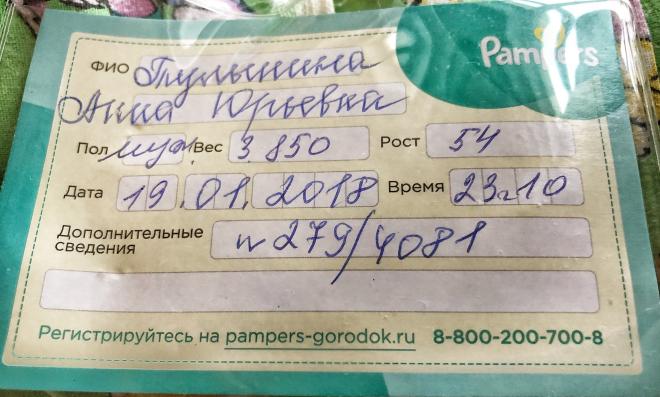 Pampers
ФИО Тулынина
Анна Юрьевна
Пол муж. Вес 3 850 Рост 54
Дата 19.01.2018 Время 23.10
Дополнительные
сведения n 279/4081
Регистрируйтесь на pampers-gorodok.ru 8-800-200-700-8